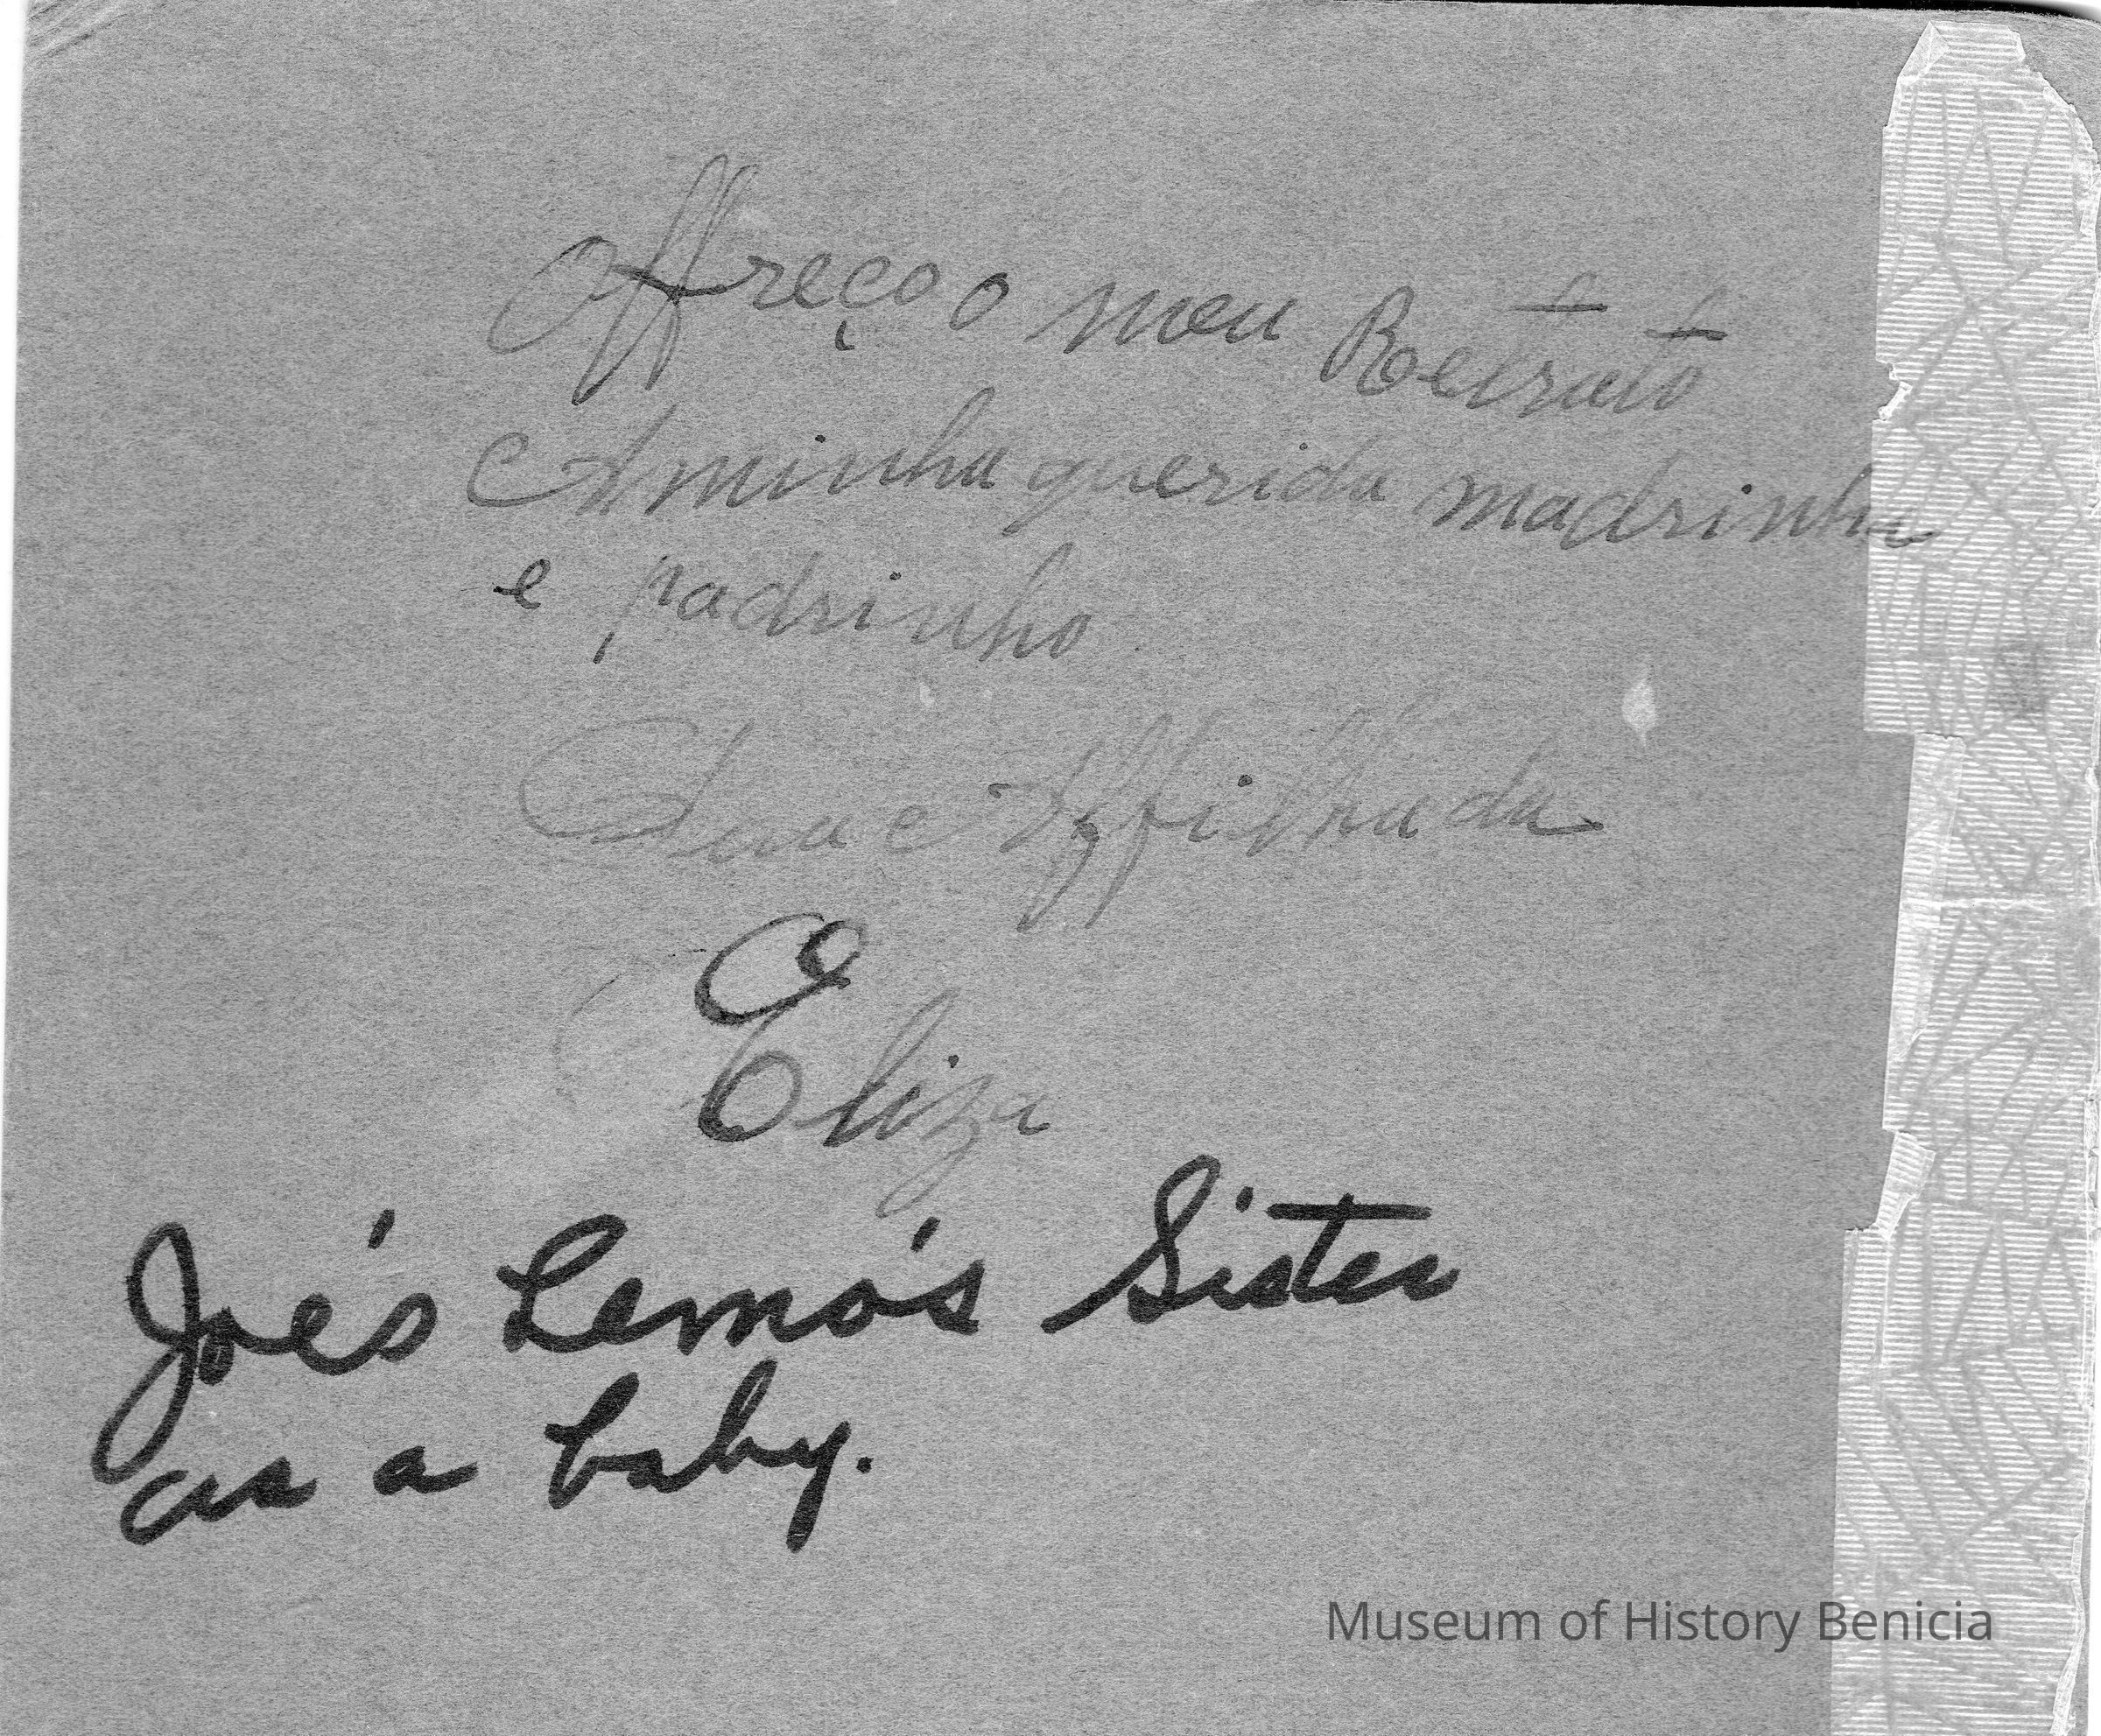 Offreço o meu Retrato
A minha querida madrinha
e padrinho.
Sua Affilhada
Eliza
Joe's Lemo's Sister
as a baby.
Museum of History Benicia